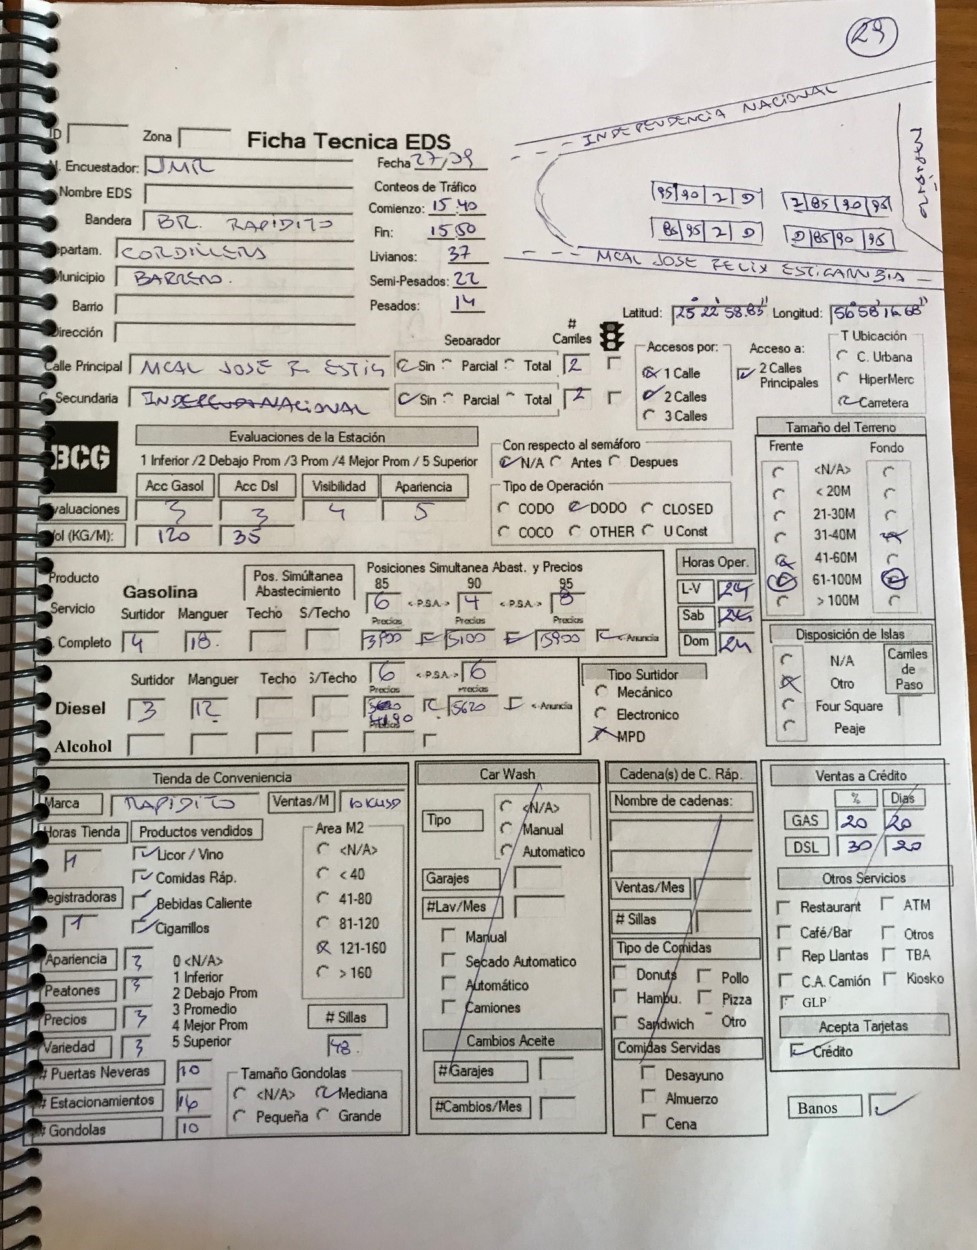 29
INDEPENDENCIA NACIONAL
ID Zona Ficha Tecnica EDS
N. Encuestador: JMR Fecha 27/09
Nombre EDS Conteos de Tráfico
Bandera BR. RAPIDITO Comienzo: 15:40
95 90 2 D 2 85 90 95
Fin: 15:50
85 95 2 D D 85 90 95
Departam. CORDILLERA Livianos: 37
MCAL JOSE FELIX ESTIGARRIBIA
Municipio BARRERO. Semi-Pesados: 22
Barrio Pesados: 14
Dirección Latitud: 25° 22' 58.85" Longitud: 56° 58' 16.68"
Separador # Carriles
Calle Principal MCAL JOSE F. ESTIG Sin Parcial Total 2
C. Secundaria INDEPEND NACIONAL Sin Parcial Total 2
Accesos por:
1 Calle
2 Calles
3 Calles
Acceso a:
2 Calles
Principales
T Ubicación
C. Urbana
HiperMerc
Carretera
BCG
Evaluaciones de la Estación
1 Inferior /2 Debajo Prom /3 Prom /4 Mejor Prom / 5 Superior
Acc Gasol Acc Dsl Visibilidad Apariencia
Evaluaciones 3 3 4 5
Vol (KG/M): 120 35
Con respecto al semáforo
N/A Antes Despues
Tipo de Operación
CODO DODO CLOSED
COCO OTHER U Const
Tamaño del Terreno
Frente Fondo
<N/A>
< 20M
21-30M
31-40M
41-60M
61-100M
> 100M
Producto
Servicio
Gasolina
Pos. Simúltanea
Abastecimiento
Posiciones Simultanea Abast. y Precios
85 90 95
6 <-P.S.A.-> 4 <-P.S.A.-> 8
Surtidor Manguer Techo S/Techo Precios Precios Precios
S. Completo 4 18. 5100 5900 <-Anuncia
Horas Oper.
L-V 24
Sab 24
Dom 24
Disposición de Islas
N/A
Otro
Four Square
Peaje
Carriles
de
Paso
Surtidor Manguer Techo S/Techo 6 <-P.S.A.-> 6
Precios Precios
Diesel 3 12 4190 5620 <-Anuncia
Precios
Alcohol
Tipo Surtidor
Mecánico
Electronico
MPD
Tienda de Conveniencia
Marca RAPIDITO Ventas/M 10KUSD
Horas Tienda Productos vendidos
Licor / Vino
Comidas Ráp.
Registradoras Bebidas Caliente
1 Cigarrillos
Area M2
<N/A>
< 40
41-80
81-120
121-160
> 160
Apariencia 3
Peatones 3
Precios 3
Variedad 3
0 <N/A>
1 Inferior
2 Debajo Prom
3 Promedio
4 Mejor Prom
5 Superior
# Sillas
48.
# Puertas Neveras 10
# Estacionamientos 16
# Gondolas 10
Tamaño Gondolas
<N/A> Mediana
Pequeña Grande
Car Wash
Tipo
<N/A>
Manual
Automatico
Garajes
#Lav/Mes
Manual
Secado Automatico
Automático
Camiones
Cambios Aceite
#Garajes
#Cambios/Mes
Cadena(s) de C. Ráp.
Nombre de cadenas:
Ventas/Mes
# Sillas
Tipo de Comidas
Donuts Pollo
Hambu. Pizza
Sandwich Otro
Comidas Servidas
Desayuno
Almuerzo
Cena
Ventas a Crédito
% Dias
GAS 20 20
DSL 30 20
Otros Servicios
Restaurant ATM
Café/Bar Otros
Rep Llantas TBA
C.A. Camión Kiosko
GLP
Acepta Tarjetas
Crédito
Banos